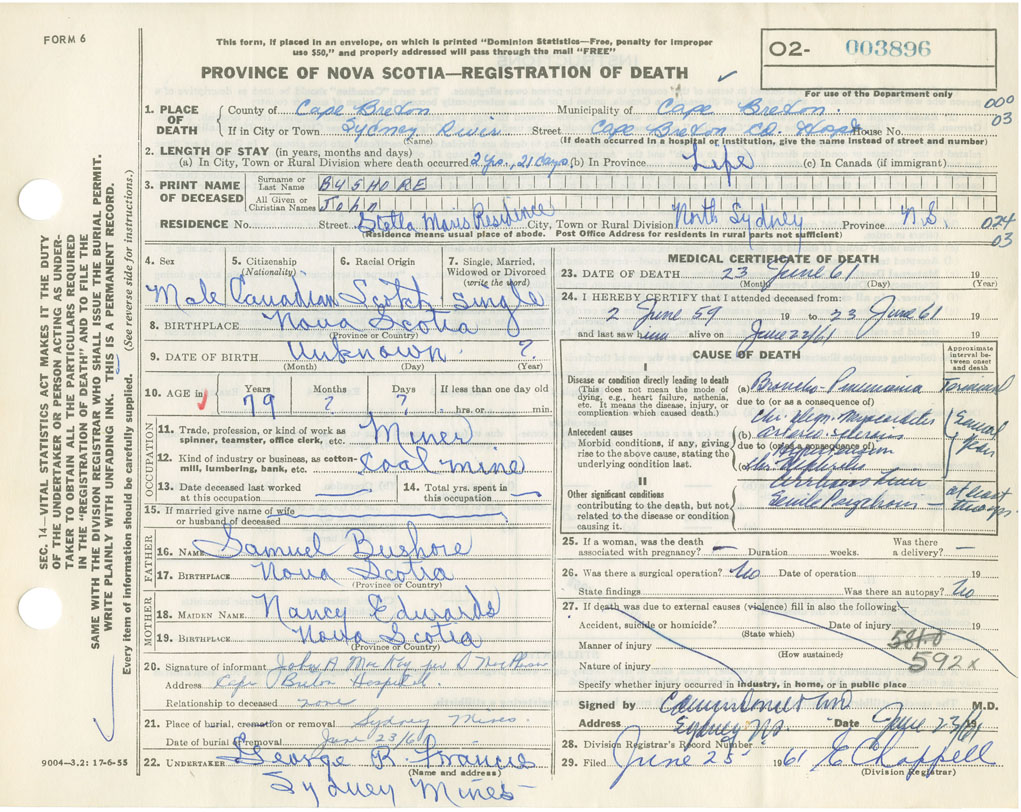 FORM 6
This form, if placed in an envelope, on which is printed "Dominion Statistics—Free, penalty for improper
use $50," and properly addressed will pass through the mail "FREE"
PROVINCE OF NOVA SCOTIA—REGISTRATION OF DEATH
02- 003896
For use of the Department only
000
03
1. PLACE OF DEATH
County of Cape Breton Municipality of Cape Breton
If in City or Town Sydney River Street Cape Breton Co. Hosp House No.
(Name) (If death occurred in a hospital or institution, give the name instead of street and number)
2. LENGTH OF STAY (in years, months and days)
(a) In City, Town or Rural Division where death occurred 2 yrs., 21 days (b) In Province Life (c) In Canada (if immigrant)
3. PRINT NAME OF DECEASED
Surname or Last Name BUSHORE
All Given or Christian Names John
RESIDENCE No. Street Stella Maris Residence City, Town or Rural Division North Sydney Province N.S.
(Residence means usual place of abode. Post Office Address for residents in rural parts not sufficient)
024
03
4. Sex 5. Citizenship (Nationality) 6. Racial Origin 7. Single, Married, Widowed or Divorced (write the word)
Male Canadian Scotch single
8. BIRTHPLACE Nova Scotia
(Province or Country)
9. DATE OF BIRTH Unknown ?
(Month) (Day) (Year)
10. AGE in Years Months Days If less than one day old
79 ? ? hrs. or min.
OCCUPATION
11. Trade, profession, or kind of work as spinner, teamster, office clerk, etc. Miner
12. Kind of industry or business, as cotton-mill, lumbering, bank, etc. Coal mine
13. Date deceased last worked at this occupation 14. Total yrs. spent in this occupation
15. If married give name of wife or husband of deceased
FATHER
16. NAME Samuel Bushore
17. BIRTHPLACE Nova Scotia
(Province or Country)
MOTHER
18. MAIDEN NAME Nancy Edwards
19. BIRTHPLACE Nova Scotia
(Province or Country)
20. Signature of informant John A MacKay per
Address Cape Breton Hospital
Relationship to deceased none
21. Place of burial, cremation or removal Sydney Mines
Date of burial or removal June 23/61
22. UNDERTAKER George R. Francis
(Name and address)
Sydney Mines
9004-3.2: 17-6-55
MEDICAL CERTIFICATE OF DEATH
23. DATE OF DEATH 23 June 61 19
(Month) (Day) (Year)
24. I HEREBY CERTIFY that I attended deceased from:
2 June 59 19 to 23 June 61 19
and last saw him alive on June 22/61 19
CAUSE OF DEATH
Approximate interval between onset and death
I
Disease or condition directly leading to death
(This does not mean the mode of dying, e.g., heart failure, asthenia, etc. It means the disease, injury, or complication which caused death.)
(a) Broncho-Pneumonia Terminal
due to (or as a consequence of)
Antecedent causes
Morbid conditions, if any, giving rise to the above cause, stating the underlying condition last.
(b)
due to (or as a consequence of)
Hypertension
(c)
II
Other significant conditions
contributing to the death, but not related to the disease or condition causing it.
Senile Psychosis at least
25. If a woman, was the death associated with pregnancy? — Duration weeks. Was there a delivery? —
26. Was there a surgical operation? No Date of operation 19
State findings Was there an autopsy? No
27. If death was due to external causes (violence) fill in also the following
Accident, suicide or homicide? Date of injury 19
(State which)
Manner of injury
(How sustained)
581.0
592x
Nature of injury
Specify whether injury occurred in industry, in home, or in public place
Signed by M.D.
Address Sydney NS. Date June 23/61 19
28. Division Registrar's Record Number
29. Filed June 25 1961 E Chappell
(Division Registrar)
SEC. 14—VITAL STATISTICS ACT MAKES IT THE DUTY
OF THE UNDERTAKER OR PERSON ACTING AS UNDER-
TAKER TO OBTAIN ALL THE PARTICULARS REQUIRED
IN THE "REGISTRATION OF DEATH" AND TO FILE THE
SAME WITH THE DIVISION REGISTRAR WHO SHALL ISSUE THE BURIAL PERMIT.
WRITE PLAINLY WITH UNFADING INK. THIS IS A PERMANENT RECORD.
Every item of information should be carefully supplied. (See reverse side for instructions.)